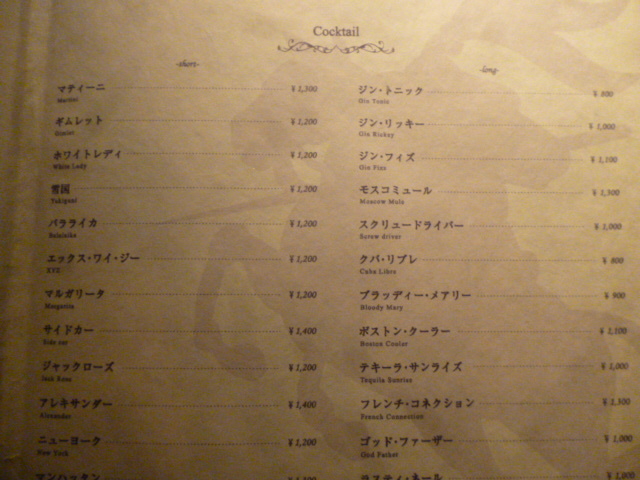 Cocktail
-short-
マティーニ ¥1,300
Martini
ギムレット ¥1,200
Gimlet
ホワイトレディ ¥1,200
White Lady
雪国 ¥1,200
Yukiguni
バラライカ ¥1,200
Balalaika
エックス・ワイ・ジー ¥1,200
XYZ
マルガリータ ¥1,200
Margarita
サイドカー ¥1,400
Side car
ジャックローズ ¥1,200
Jack Rose
アレキサンダー ¥1,400
Alexander
ニューヨーク ¥1,200
New York
マンハッタン
-long-
ジン・トニック ¥800
Gin Tonic
ジン・リッキー ¥1,000
Gin Rickey
ジン・フィズ ¥1,100
Gin Fizz
モスコミュール ¥1,300
Moscow Mule
スクリュードライバー ¥1,000
Screw driver
クバ・リブレ ¥800
Cuba Libre
ブラッディー・メアリー ¥900
Bloody Mary
ボストン・クーラー ¥1,100
Boston Cooler
テキーラ・サンライズ ¥1,000
Tequila Sunrise
フレンチ・コネクション ¥1,300
French Connection
ゴッド・ファーザー ¥1,000
God Father
ラスティ・ネール